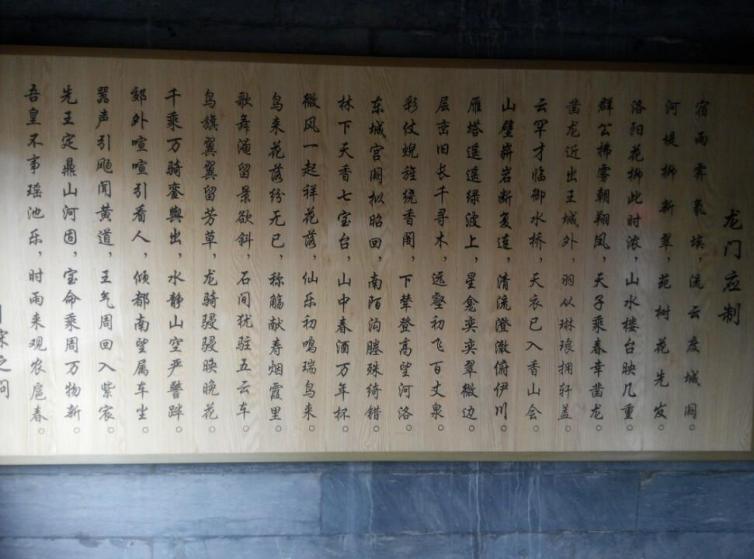 龙门应制
宿雨霁氛埃，流云度城阙。
河堤柳新翠，苑树花先发。
洛阳花柳此时浓，山水楼台映几重。
群公拂雾朝翔凤，天子乘春幸凿龙。
凿龙近出王城外，羽从琳琅拥轩盖。
云罕才临御水桥，天衣已入香山会。
山壁崭岩断复连，清流澄澈俯伊川。
雁塔遥遥绿波上，星龛奕奕翠微边。
层峦旧长千寻木，远壑初飞百丈泉。
彩仗蜺旌绕香阁，下辇登高望河洛。
东城宫阙拟昭回，南陌沟塍殊绮错。
林下天香七宝台，山中春酒万年杯。
微风一起祥花落，仙乐初鸣瑞鸟来。
鸟来花落纷无已，称觞献寿烟霞里。
歌舞淹留景欲斜，石间犹驻五云车。
鸟旗翼翼留芳草，龙骑骎骎映晚花。
千乘万骑銮舆出，水静山空严警跸。
郊外喧喧引看人，倾都南望属车尘。
嚣声引飏闻黄道，王气周回入紫宸。
先王定鼎山河固，宝命乘周万物新。
吾皇不事瑶池乐，时雨来观农扈春。
宋之问